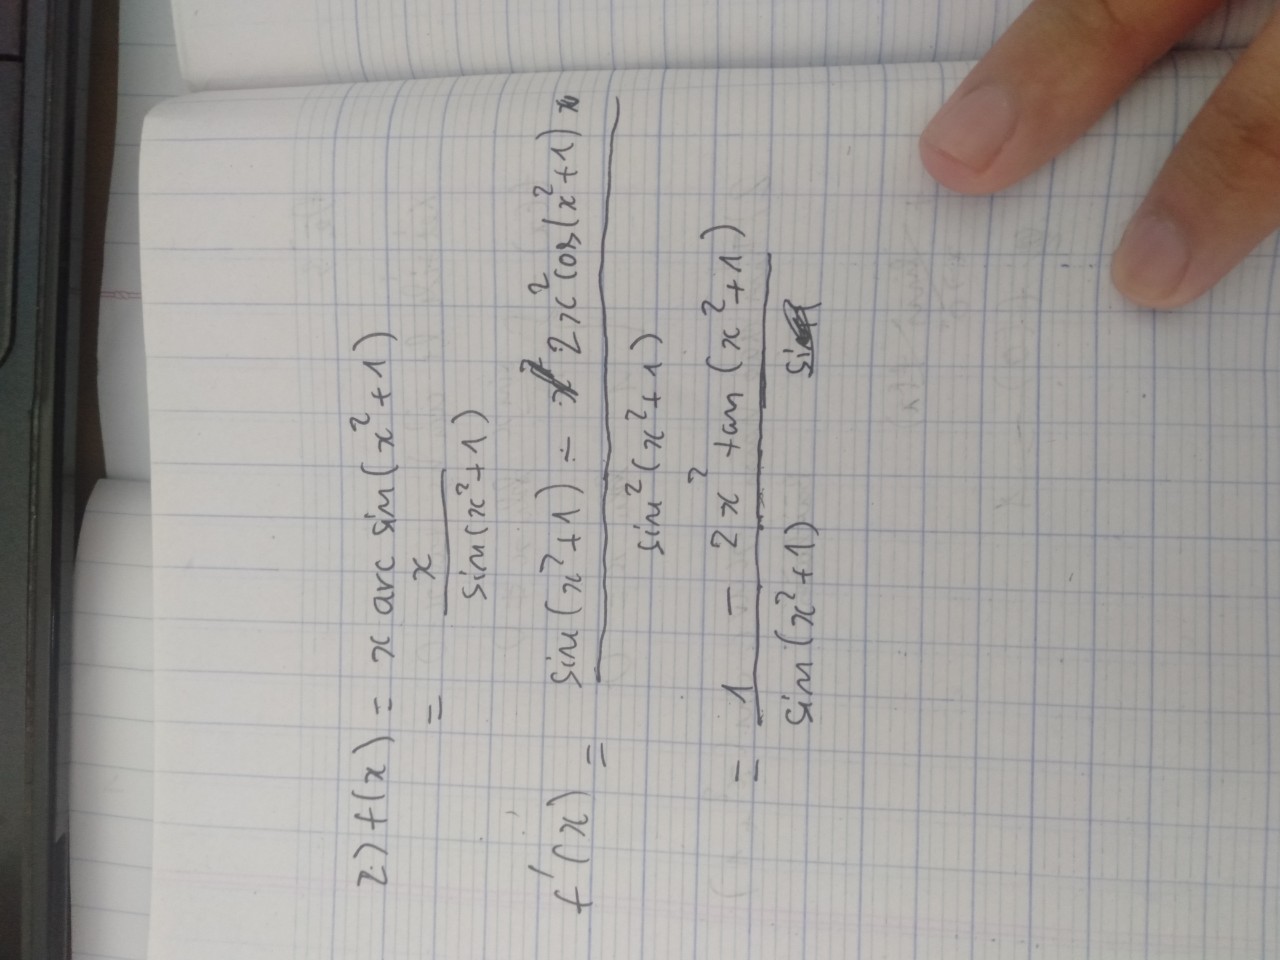 2) f(x) = x arc sin(x²+1)
= x / sin(x²+1)
f'(x) = sin(x²+1) - 2x² cos(x²+1) / sin²(x²+1)
= 1 - 2x² tan(x²+1) / sin(x²+1)